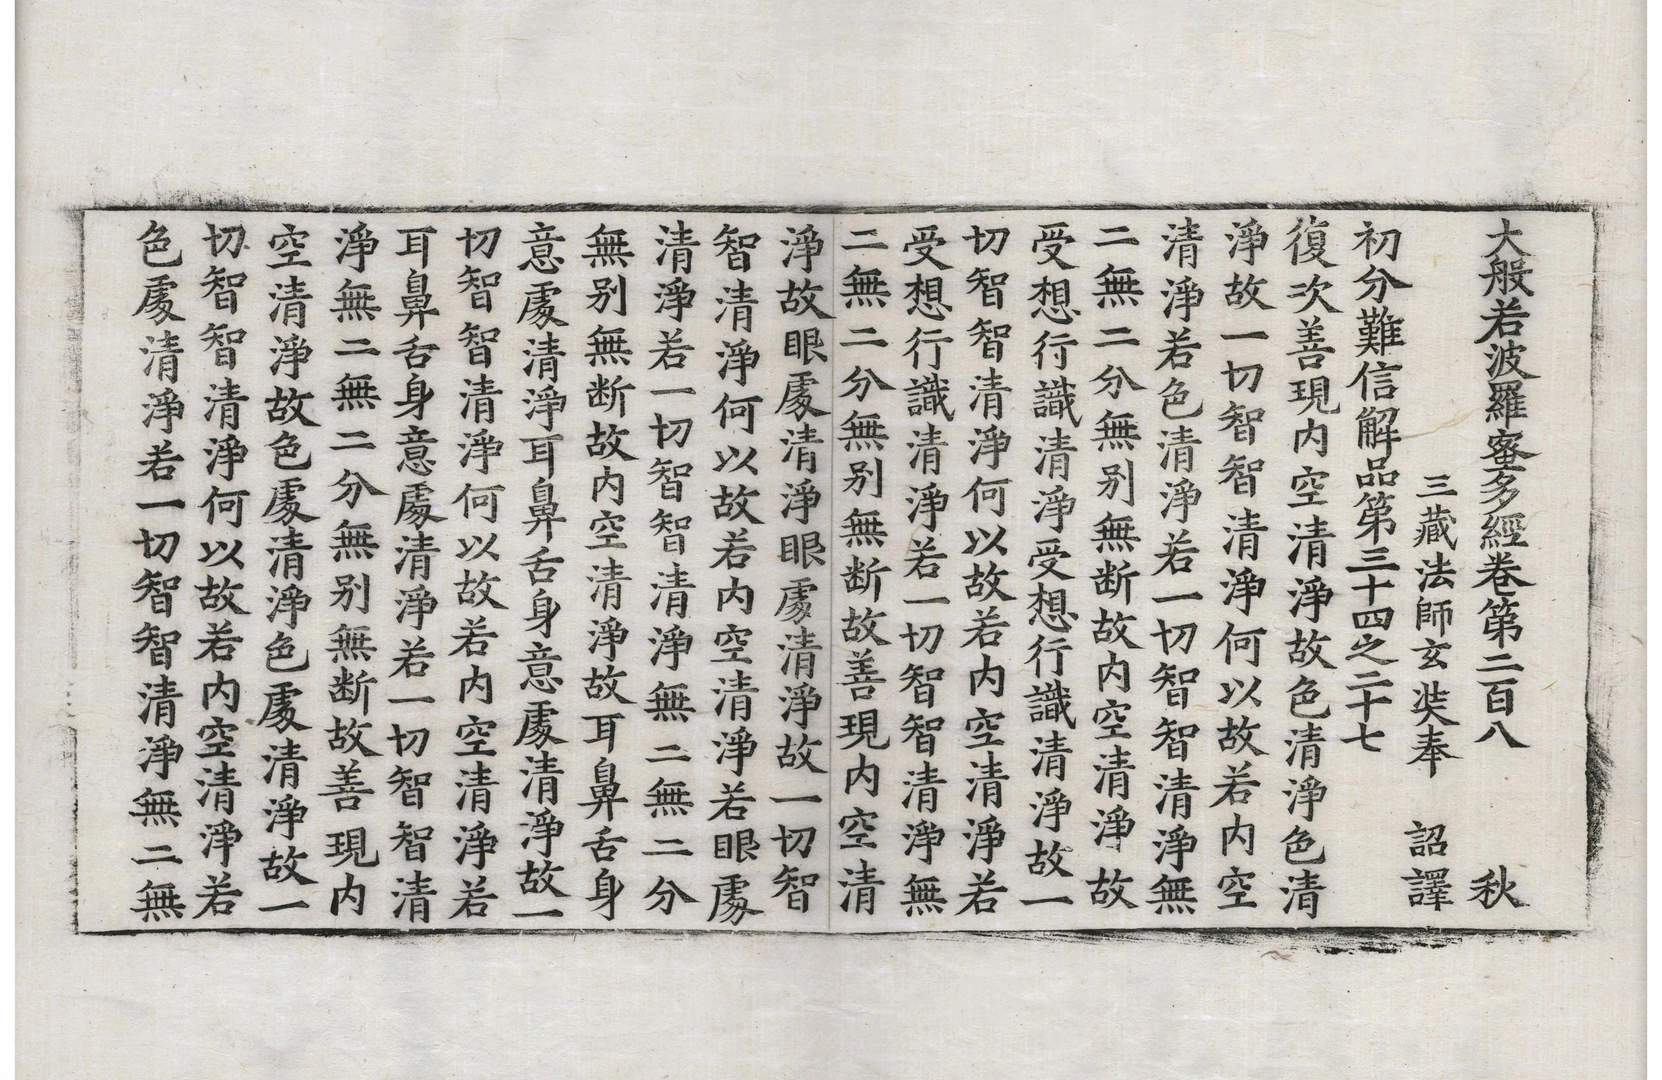 大般若波羅蜜多經卷第二百八 秋
三藏法師玄奘奉 詔譯
初分難信解品第三十四之二十七
復次善現内空清淨故色清淨色清
淨故一切智智清淨何以故若内空
清淨若色清淨若一切智智清淨無
二無二分無别無断故内空清淨故
受想行識清淨受想行識清淨故一
切智智清淨何以故若内空清淨若
受想行識清淨若一切智智清淨無
二無二分無别無断故善現内空清
淨故眼處清淨眼處清淨故一切智
智清淨何以故若内空清淨若眼處
清淨若一切智智清淨無二無二分
無别無断故内空清淨故耳鼻舌身
意處清淨耳鼻舌身意處清淨故一
切智智清淨何以故若内空清淨若
耳鼻舌身意處清淨若一切智智清
淨無二無二分無别無断故善現内
空清淨故色處清淨色處清淨故一
切智智清淨何以故若内空清淨若
色處清淨若一切智智清淨無二無